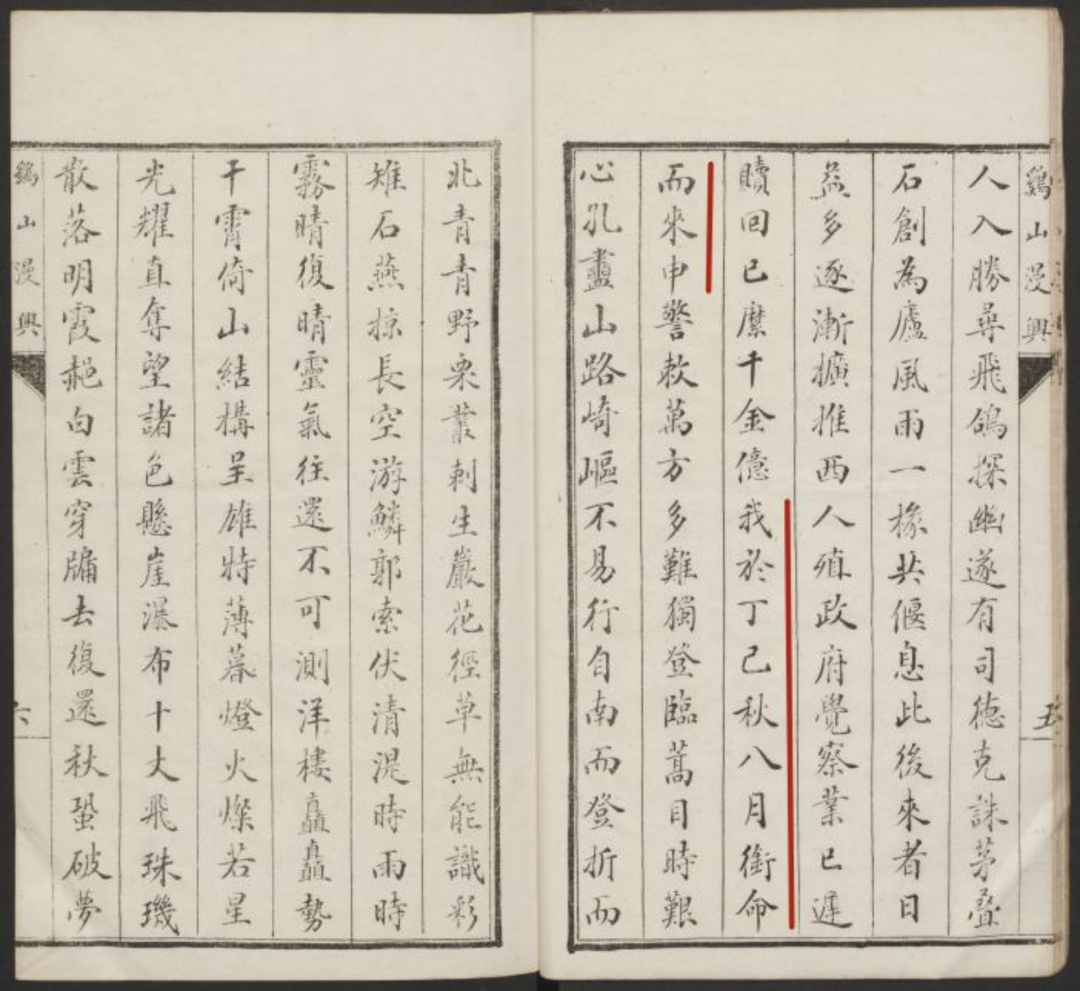 鷄山漫興
五
人入勝尋飛鴿探幽遂有司德克誅茅疊
石創為廬風雨一椽共偃息此後來者日
益多逐漸擴推西人殖政府覺察業已遲
贖回已縻千金億我於丁巳秋八月銜命
而來申警敕萬方多難獨登臨蒿目時艱
心孔盡山路崎嶇不易行自南而登折而
北青青野栗叢刺生巖花徑草無能識彩
雉石燕掠長空游鱗郭索伏清湜時雨時
霧晴復晴靈氣往還不可測洋樓矗矗勢
干霄倚山結構呈雄特薄暮燈火燦若星
光耀直奪望諸色懸崖瀑布十丈飛珠璣
散落明霞赩白雲穿牖去復還秋蛩破夢
鷄山漫興
六